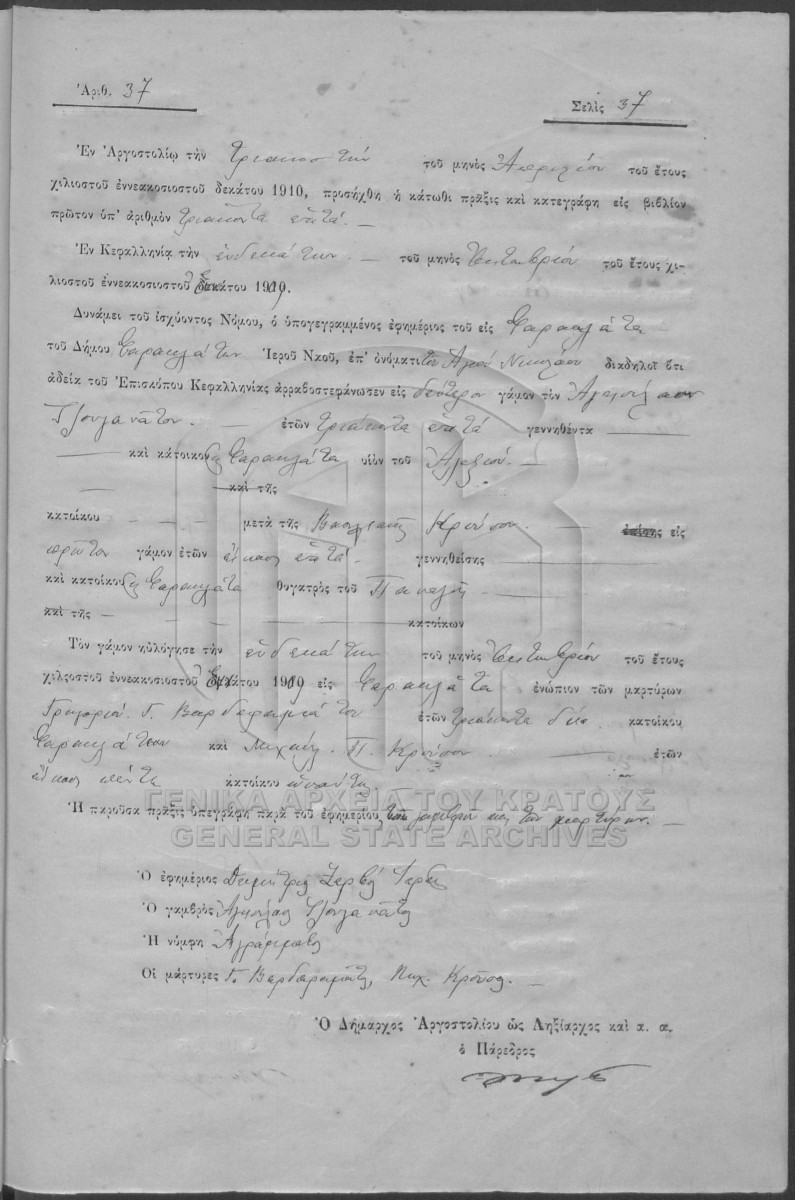 Ἀριθ. 37
Σελὶς 37
Ἐν Ἀργοστολίῳ τὴν τριακοστὴν τοῦ μηνὸς Ἀπριλίου τοῦ ἔτους
χιλιοστοῦ ἐννεακοσιοστοῦ δεκάτου 1910, προσήχθη ἡ κάτωθι πρᾶξις καὶ κατεγράφη εἰς βιβλίον
πρῶτον ὑπ' ἀριθμὸν τριάκοντα ἑπτά. —
Ἐν Κεφαλληνίᾳ τὴν ἑνδεκάτην — τοῦ μηνὸς τοῦ ἔτους χι-
λιοστοῦ ἐννεακοσιοστοῦ
Δυνάμει τοῦ ἰσχύοντος Νόμου, ὁ ὑπογεγραμμένος ἐφημέριος τοῦ εἰς Φαρακλάτα
τοῦ Δήμου Φαρακλάτων Ἱεροῦ Ναοῦ, ἐπ' ὀνόματι τοῦ Ἁγίου Νικολάου διαδηλοῖ ὅτι
ἀδείᾳ τοῦ Ἐπισκόπου Κεφαλληνίας ἀρραβοστεφάνωσεν εἰς δεύτερον γάμον τὸν
Τζουγανᾶτον. — ἐτῶν τριάκοντα ἑπτά γεννηθέντα —
— καὶ κάτοικον εἰς Φαρακλάτα υἱὸν τοῦ Ἀλεξίου. —
— καὶ τῆς
κατοίκου — — — μετὰ τῆς Βασιλικῆς Κρούσου. — ἐπίσης εἰς
πρῶτον γάμον ἐτῶν εἴκοσι ἑπτά. γεννηθείσης —
καὶ κατοίκου εἰς Φαρακλάτα θυγατρὸς τοῦ Παναγῆ —
καὶ τῆς — κατοίκων
Τὸν γάμον ηὐλόγησε τὴν ἑνδεκάτην τοῦ μηνὸς τοῦ ἔτους
χιλιοστοῦ ἐννεακοσιοστοῦ εἰς Φαρακλάτα ἐνώπιον τῶν μαρτύρων
Γρηγορίου Γ. Βαρδαραμάτου ἐτῶν τριάκοντα δύο κατοίκου
Φαρακλάτων καὶ Μιχαὴλ Π. Κρούσου — ἐτῶν
εἴκοσι πέντε κατοίκου
ΓΕΝΙΚΑ ΑΡΧΕΙΑ ΤΟΥ ΚΡΑΤΟΥΣ
Ἡ παροῦσα πρᾶξις ὑπεγράφη παρὰ τοῦ ἐφημερίου, τῶν καὶ τῶν μαρτύρων. —
GENERAL STATE ARCHIVES
Ὁ ἐφημέριος Δημήτριος Ζερβὸς Ἱερεὺς
Ὁ γαμβρὸς Τζουγανᾶτος
Ἡ νύμφη Ἀγράμματος
Οἱ μάρτυρες Γ. Βαρδαραμᾶτος, Μιχ. Κροῦσος. —
Ὁ Δήμαρχος Ἀργοστολίου ὡς Ληξίαρχος καὶ α. α.
ὁ Πάρεδρος